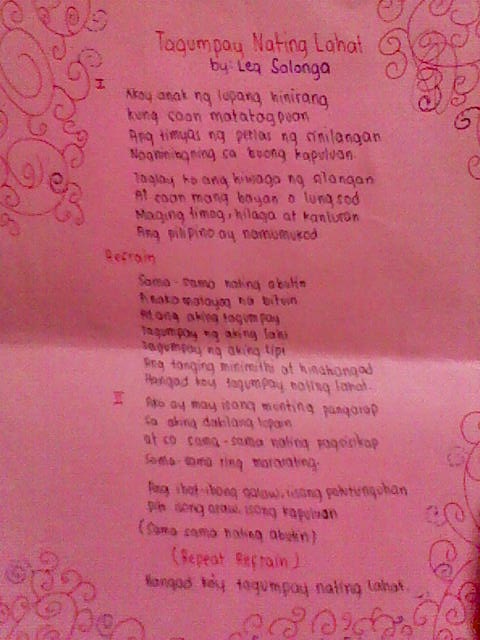 Tagumpay Nating Lahat
by: Lea Salonga
I
Akoy anak ng lupang hinirang
kung saan matatagpuan
Ang timyas ng perlas ng sinilangan
Nagniningning sa buong kapuluan.
Taglay ko ang hiwaga ng silangan
At saan mang bayan o lungsod
Maging timog, hilaga at kanluran
Ang pilipino ay namumukod
Refrain
Sama-sama nating abutin
Pinakamatayog na bituin
At ang aking tagumpay
Tagumpay ng aking lahi
Tagumpay ng aking lipi
Ang tanging minimithi at hinahangad
Hangad koy tagumpay nating lahat.
II
Ako ay may isang munting pangarap
Sa aking dakilang lupain
at sa sama-sama nating pagsisikap
Sama-sama ring mararating.
Ang ibat-ibang galaw, iisang patutunguhan
isang araw, isang kapuluan
(Sama sama nating abutin)
(Repeat Refrain)
Hangad koy tagumpay nating lahat.